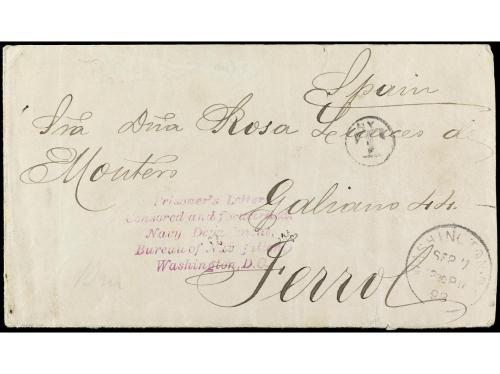 Spain
Srã Dña Rosa Seijas de
Montero
Galiano 44-
Ferrol
Prisoner's Letter
Censored and forwarded.
Navy Department,
Bureau of Navigation
Washington, D.C.
N.Y.
WASHINGTON
SEP 7
98